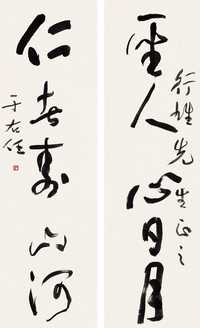 聖人心日月
行雄先生正之
仁者壽山河
于右任